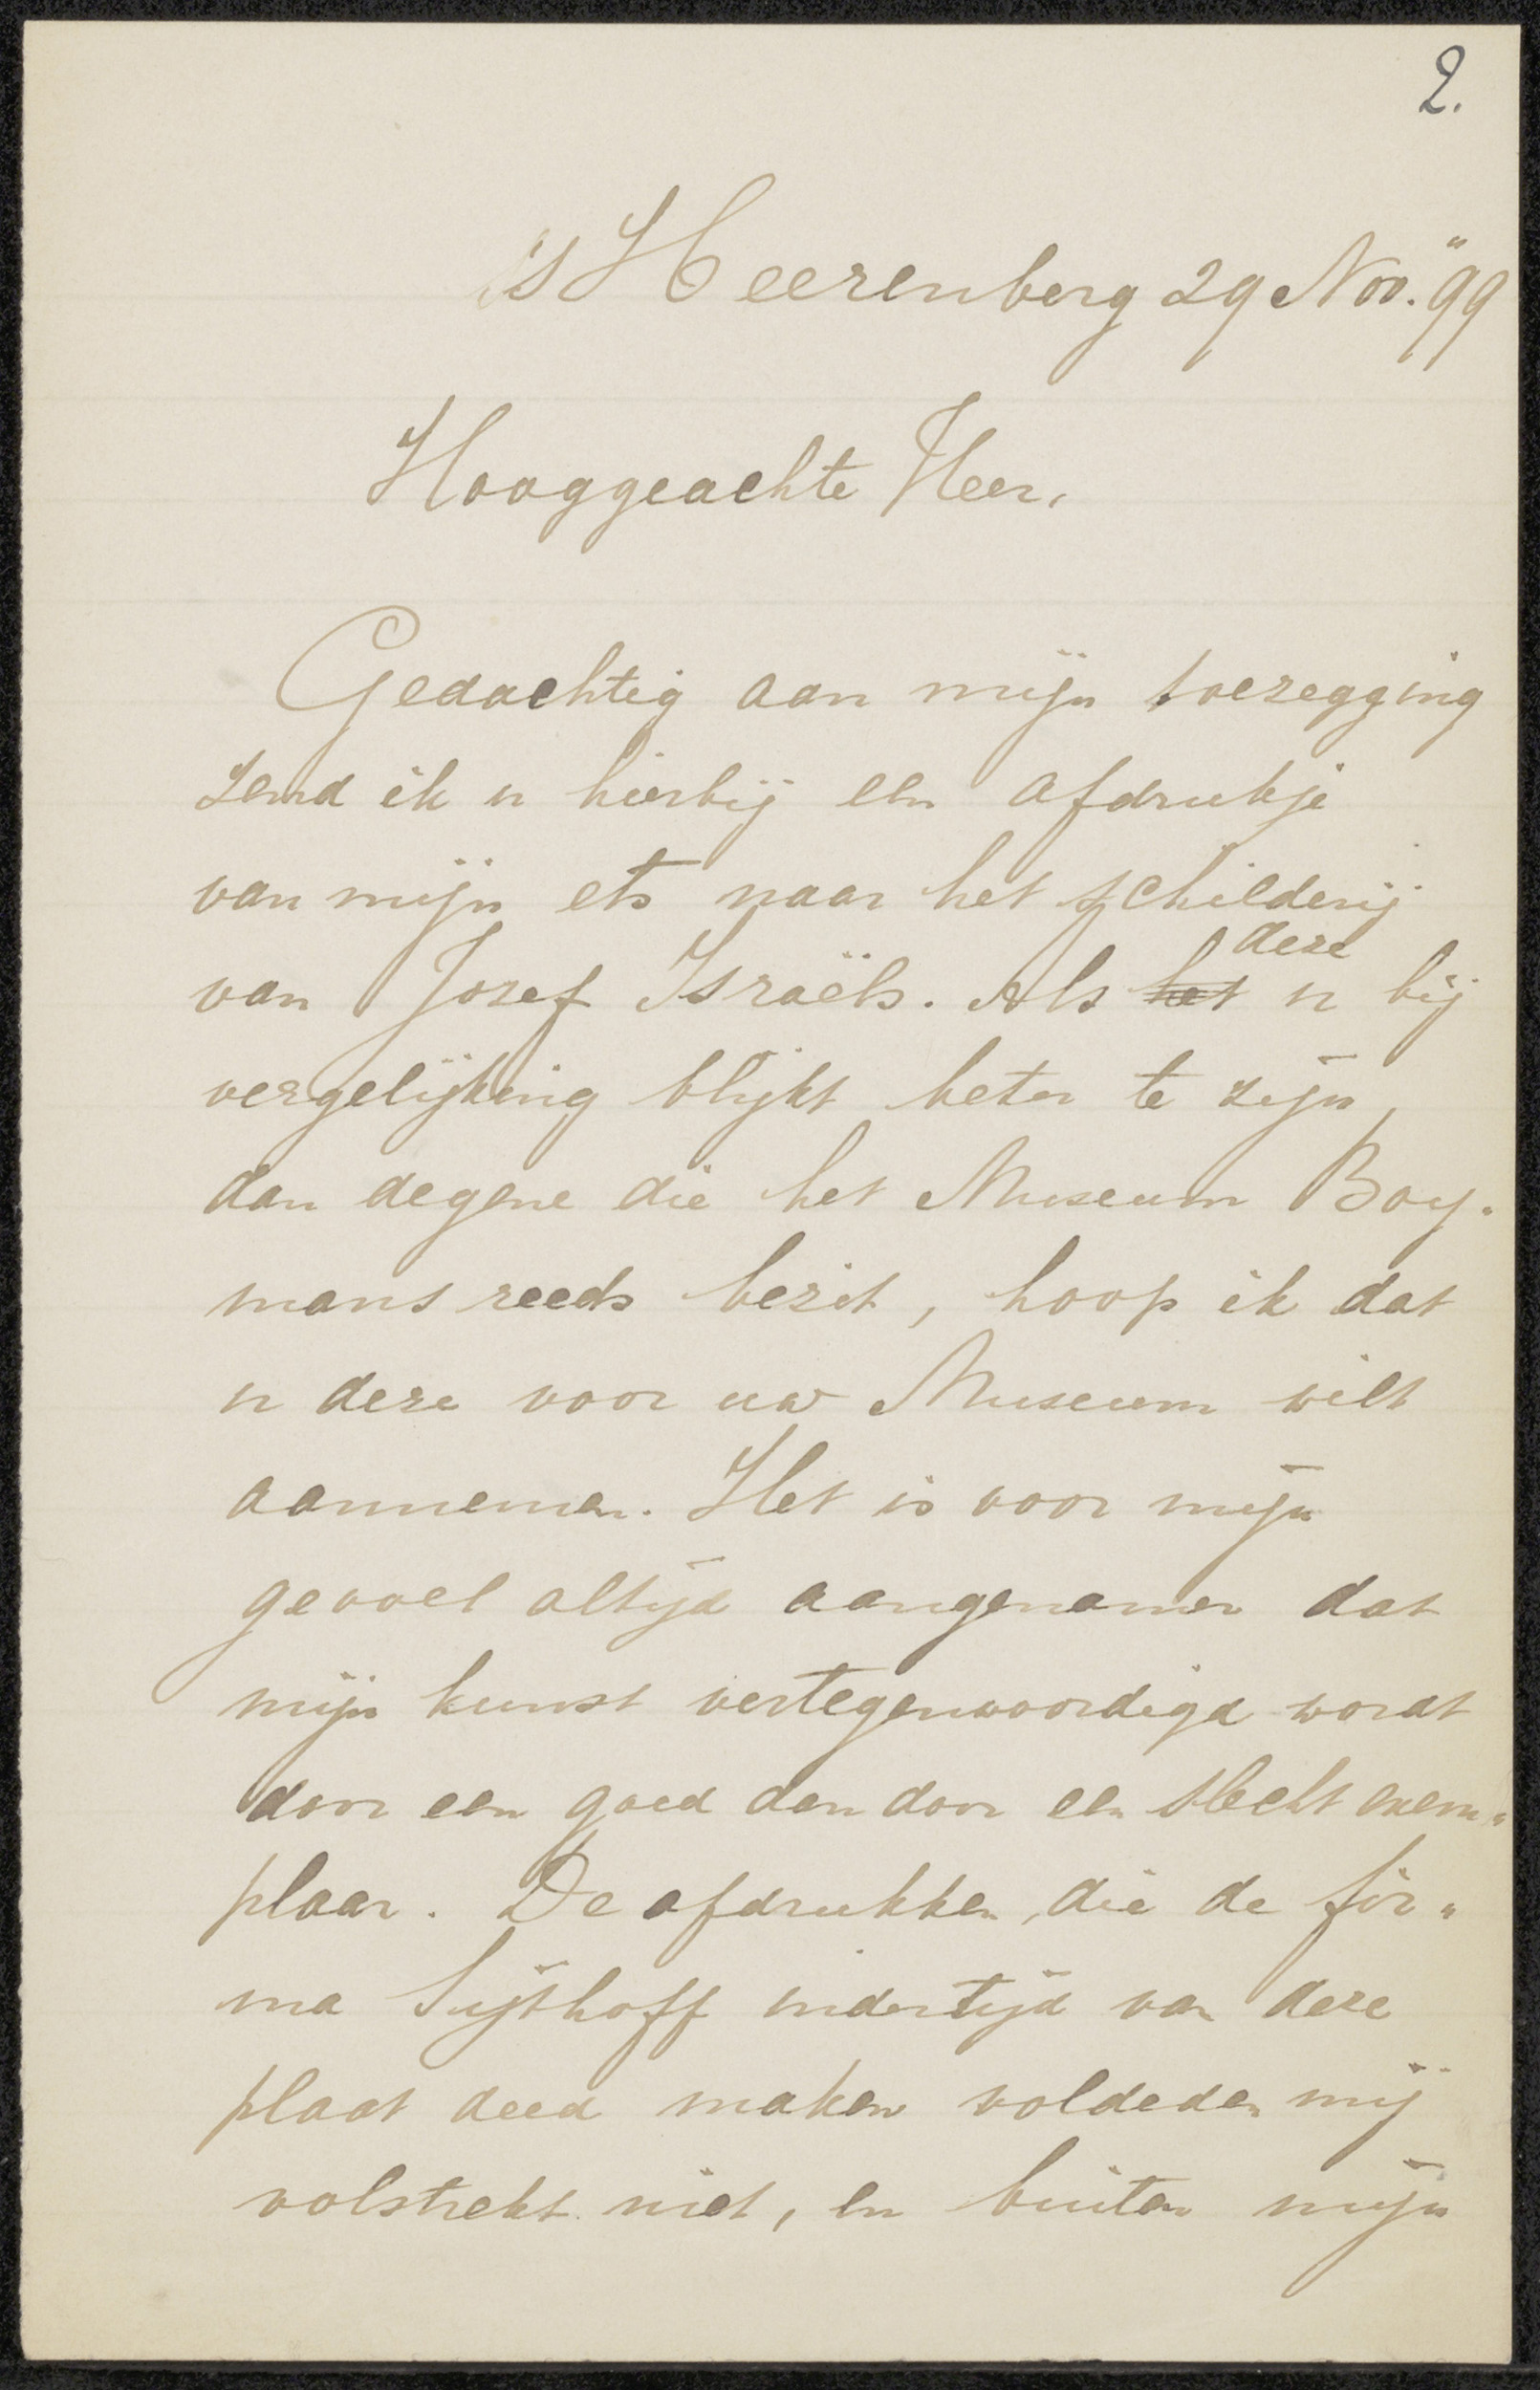 2.
's Heerenberg 29 Nov. "99
Hooggeachte Heer,
Gedachtig aan mijn toezegging
zend ik u hierbij een afdrukje
van mijn ets naar het schilderij
van Jozef Israëls. Als het deze u bij
vergelijking blijkt beter te zijn,
dan degene die het Museum Boy-
mans reeds bezit, hoop ik dat
u deze voor uw Museum wilt
aannemen. Het is voor mijn
gevoel altijd aangenamer dat
mijn kunst vertegenwoordigd wordt
door een goed dan door een slecht exem-
plaar. De afdrukken, die de fir-
ma Sijthoff indertijd van deze
plaat deed maken voldeden mij
volstrekt niet, en buiten mijn